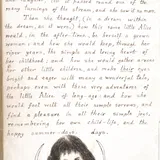 many turnings of the stream, and she was in it
Then she thought, (in a dream within
the dream, as it were,) how this same little Alice
would, in the after-time, be herself a grown
woman: and how she would keep, through her
riper years, the simple and loving heart of
her childhood: and how she would gather around
her other little children, and make their eyes
bright and eager with many a wonderful tale,
perhaps even with these very adventures of
the little Alice of long-ago: and how she
would feel with all their simple sorrows, and
find a pleasure in all their simple joys,
remembering her own child-life, and the
happy summer days.